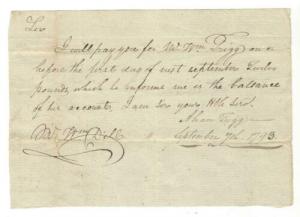 Sir
I will pay you for Mr. Wm Trigg on or
before the first day of next september Twelve
pounds, which he informs me is the ballance
of his accounts, I am Sir your Hble Serv.
Abram Trigg
Mr. Wm Dobl September 7th 1793.